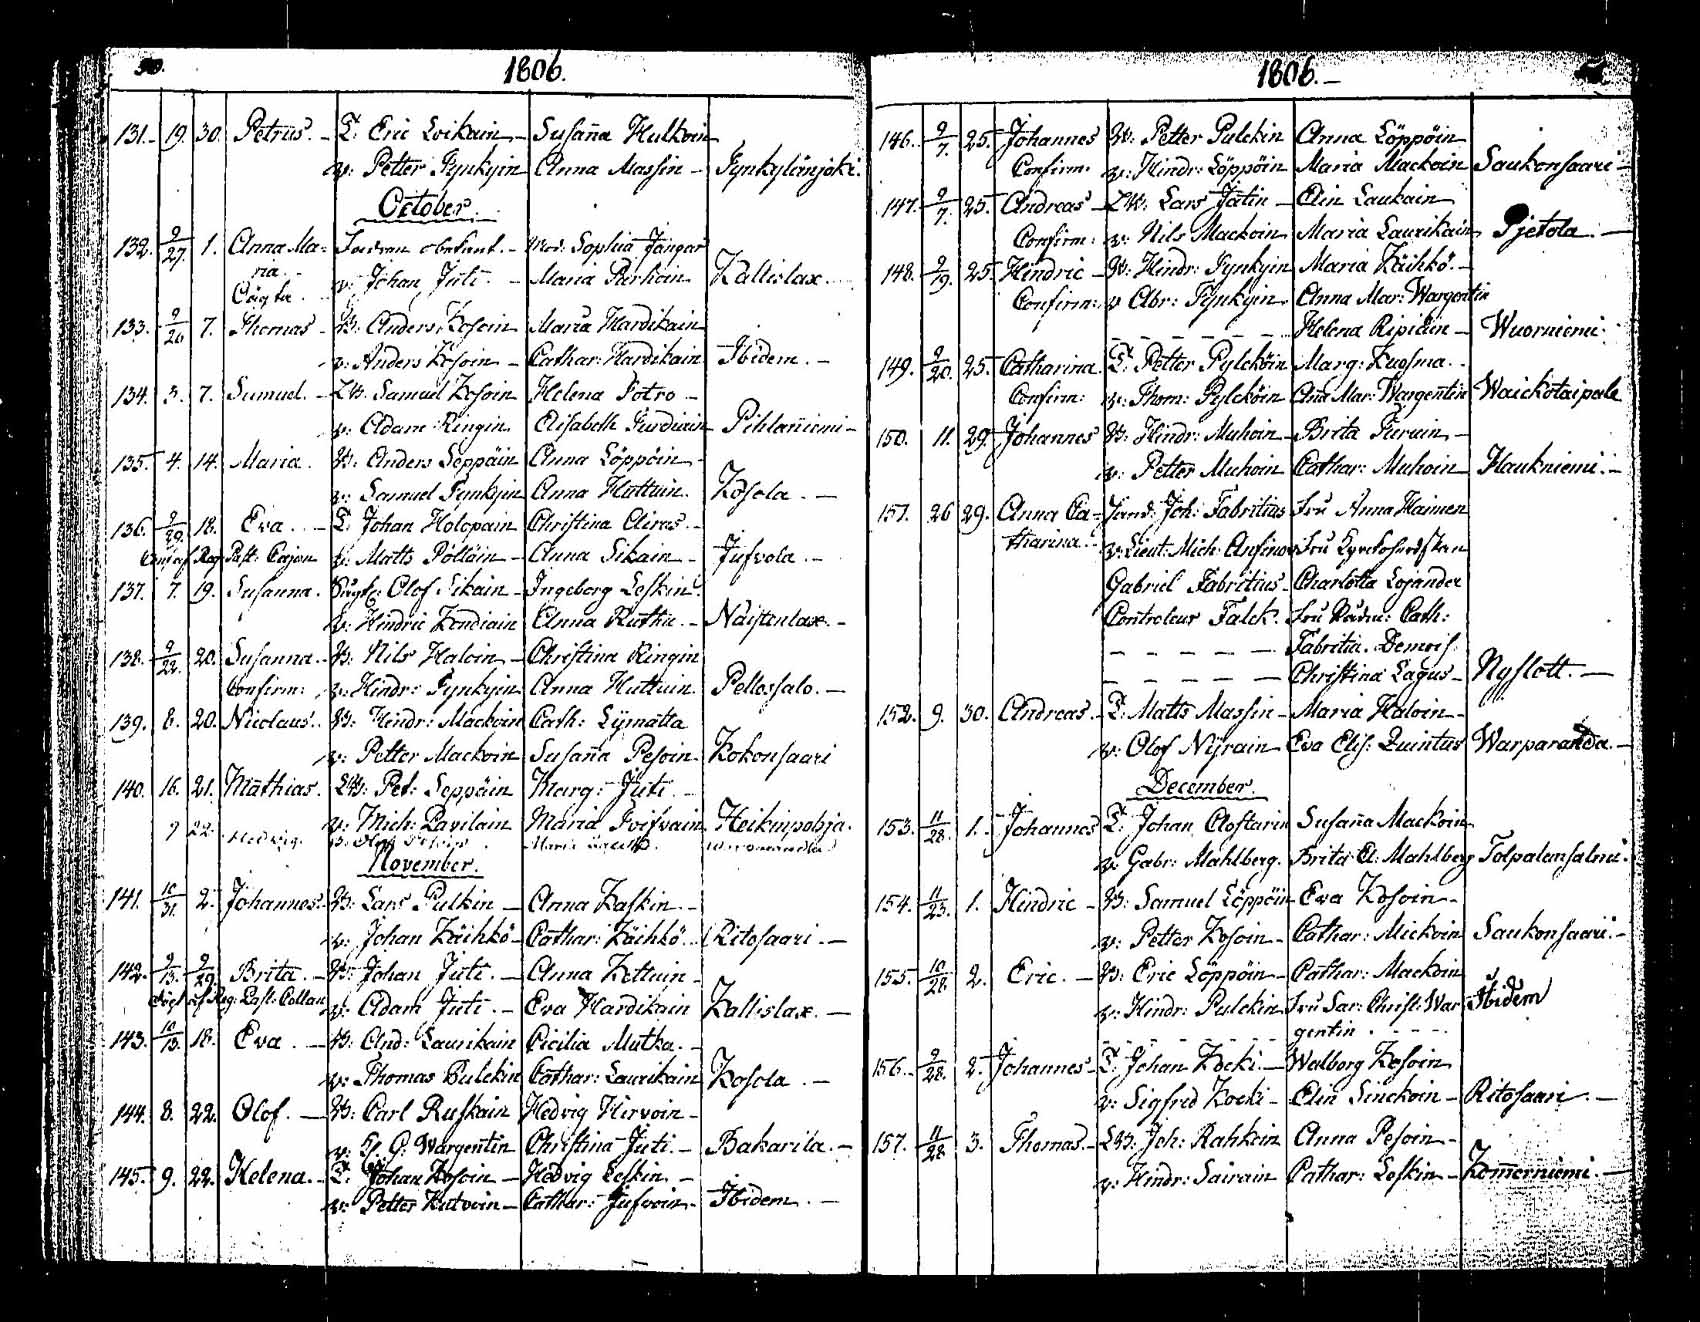 50.
1806.
131. 19. 30. Petrus. T. Eric Loikain Susaña Hulkoin
v: Petter Tynkyin Anna Massin
October.
132. 9/27. 1. Anna Ma- Mod. Sophia
ria. v: Johan Juti. Maria Parkain Kallislax.
133. 9/26 7. Thomas B: Anders Kosoin Maria Hardikain
v: Anders Kosoin Cathar: Hardikain Ibidem.
134. 3. 7. Samuel. LB: Samuel Kosoin Helena Potro
v: Adam Ringin Elisabeth Pihlaniemi
135. 4. 14. Maria. B: Anders Seppäin Anna Löppöin
v: Samuel Tynkyin Anna Huttuin. Kosola.
136. 9/29. 18. Eva. T. Johan Holopain Christina
v: Matts Pöllöin Anna Sikain Jufvola.
137. 7. 19. Susanna. Olof Sikain Ingeborg Leskin
v: Hindric Kondiain Anna
138. 9/22. 20. Susanna. B: Nils Haloin Christina Ringin
Confirm: v: Hindr: Tynkyin Anna Huttuin. Pellossalo.
139. 8. 20. Nicolaus. B: Hindr: Mackoin Cath: Lÿmatta
v: Petter Mackoin Susaña Pesoin Kokonsaari
140. 16. 21. Mathias. LB: Pet: Seppäin Marg: Juti.
v: Mich: Pavilain Maria Heikinpohja.
9 22. Hedvig.
November.
141. 10/31. 2. Johannes. B: Lars Pulkin Anna Kaskin
v: Johan Käihkö Cathar: Käihkö Ritosaari.
142. 9/13. 9/29. Brita. B: Johan Juti. Anna Kettuin
v: Adam Juti. Eva Hardikain Kallislax.
143. 10/13. 18. Eva. B: And: Laurikain Cicilia Mutka.
v: Thomas Pulckin Cathar: Laurikain Kosola.
144. 8. 22. Olof. B: Carl Ruskain Hedvig Hirvoin
v: Wargentin Christina Juti. Bakarila.
145. 9. 22. Helena. T. Johan Kosoin Hedvig Leskin
v: Petter Kutvoin Cathar: Jufvoin Ibidem.
1806.
146. 9/7. 25. Johannes B: Petter Pulckin Anna Löppöin
Confirm: v: Hindr: Löppöin Maria Mackoin Saukonsaari
147. 9/7. 25. Andreas LB: Lars Jätin Elin Laukain
Confirm: v: Nils Mackoin Maria Laurikain Pjetola.
148. 9/19. 25. Hindric B: Hindr: Tynkyin Maria Käihkö.
Confirm: v Abr: Tynkyin Anna Mar: Wargentin
Helena Ripiäin Wuorniemi.
149. 9/20. 25. Catharina. T. Petter Pylcköin Marg: Kuosma.
Confirm: v: Thom: Pylcköin Aña Mar: Wargentin Waickotaipale
150. 11. 29. Johannes B: Hindr: Muhoin Brita
v: Petter Muhoin Cathar: Muhoin Haukniemi.
151. 26 29. Anna Ca- Joh: Fabritius Fru Anna Hainen
tharina. v: Lieut: Mich: Fru
Gabriel Fabritius Charlotta Lojander
Controleur Falck. Fru Cath:
Fabritia. Demois:
Christina Lagus Nyslott.
152. 9. 30. Andreas. T. Matts Massin Maria Haloin
v: Olof Nÿrain Eva Elis: Quintus Warparanda.
December.
153. 11/28. 1. Johannes T. Johan Clostarin Susaña Mackoin
v: Gabr: Mahlberg. Brita El. Mahlberg Tolpalansalmi.
154. 11/23. 1. Hindric B: Samuel Löppöin Eva Kosoin
v: Petter Kosoin Cathar: Mickoin Saukonsaari.
155. 10/28. 2. Eric. B: Eric Löppöin Cathar: Mackoin
v: Hindr: Pulckin Fru Sar: Christ: War Ibidem
gentin
156. 9/28. 2. Johannes T. Johan Kocki. Walborg Kosoin
v: Sigfred Kocki Elin Sinckoin Ritosaari.
157. 11/28. 3. Thomas. LB: Joh: Rahkoin Anna Pesoin
v: Hindr: Sairain Cathar: Leskin Kom̃erniemi.